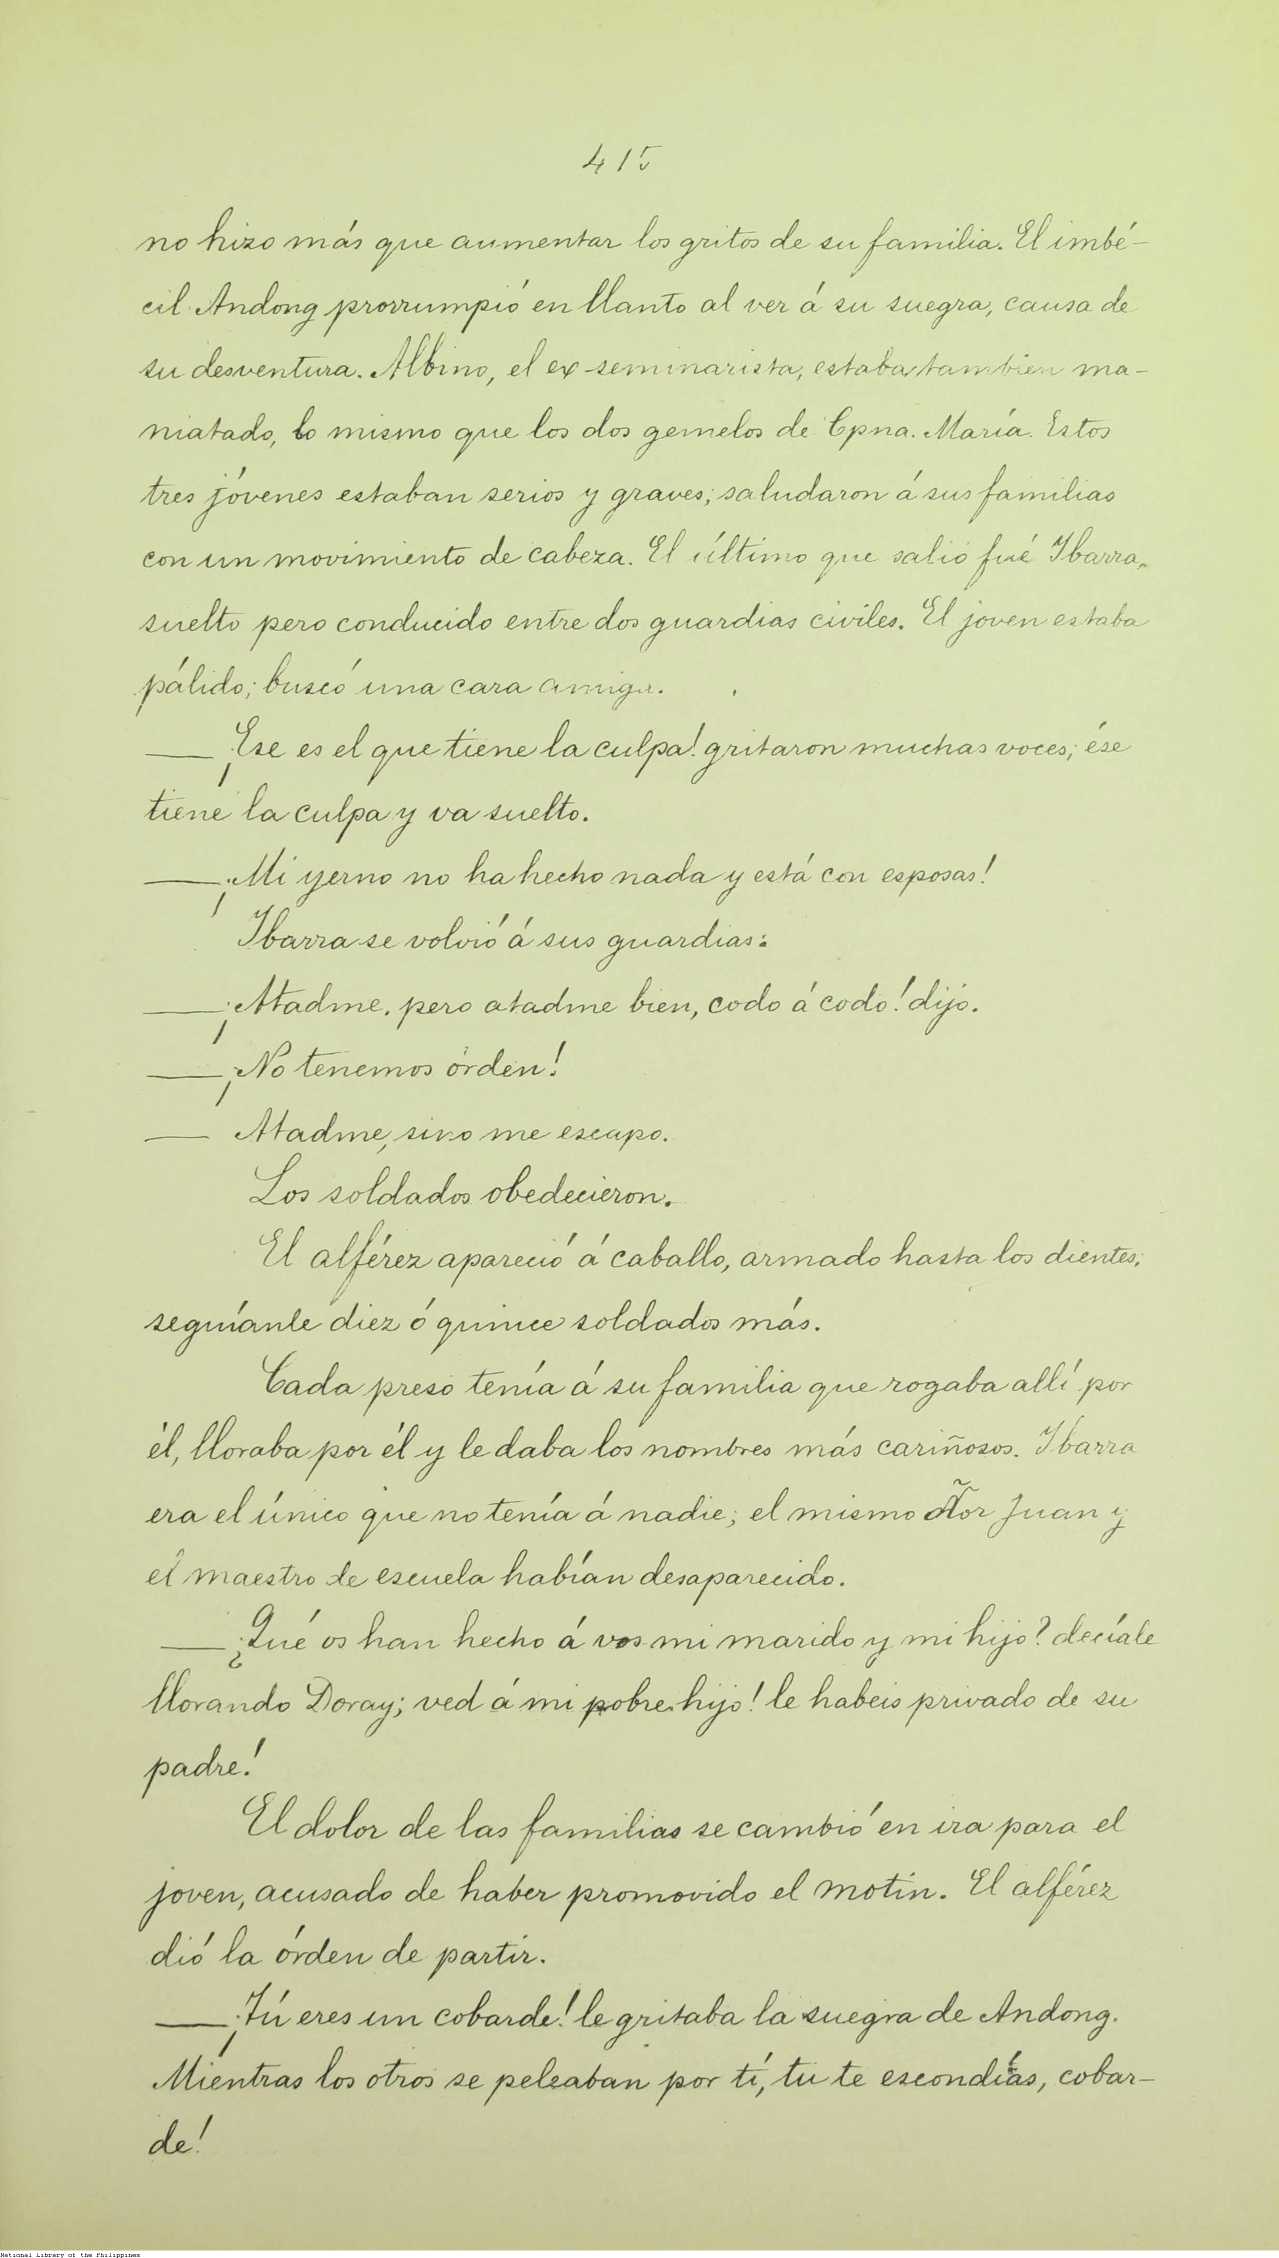 415
no hizo más que aumentar los gritos de su familia. El imbé-
cil Andong prorrumpió en llanto al ver á su suegra, causa de
su desventura. Albino, el ex-seminarista, estaba tambien ma-
niatado, lo mismo que los dos gemelos de Cpna. María. Estos
tres jóvenes estaban serios y graves; saludaron á sus familias
con un movimiento de cabeza. El último que salió fué Ibarra,
suelto pero conducido entre dos guardias civiles. El joven estaba
pálido; buscó una cara amiga.
— ¡Ese es el que tiene la culpa! gritaron muchas voces; ése
tiene la culpa y va suelto.
— ¡Mi yerno no ha hecho nada y está con esposas!
Ibarra se volvió á sus guardias:
— ¡Atadme, pero atadme bien, codo á codo! dijo.
— ¡No tenemos órden!
— Atadme, sino me escapo.
Los soldados obedecieron.
El alférez apareció á caballo, armado hasta los dientes;
seguíanle diez ó quince soldados más.
Cada preso tenía á su familia que rogaba allí por
él, lloraba por él y le daba los nombres más cariñosos. Ibarra
era el único que no tenía á nadie; el mismo Ñor Juan y
el maestro de escuela habían desaparecido.
— ¿Qué os han hecho á vos mi marido y mi hijo? decíale
llorando Doray; ved á mi pobre hijo! le habeis privado de su
padre!
El dolor de las familias se cambió en ira para el
joven, acusado de haber promovido el motin. El alférez
dió la órden de partir.
— ¡Tú eres un cobarde! le gritaba la suegra de Andong.
Mientras los otros se peleaban por tí, tu te escondías, cobar-
de!
National Library of the Philippines